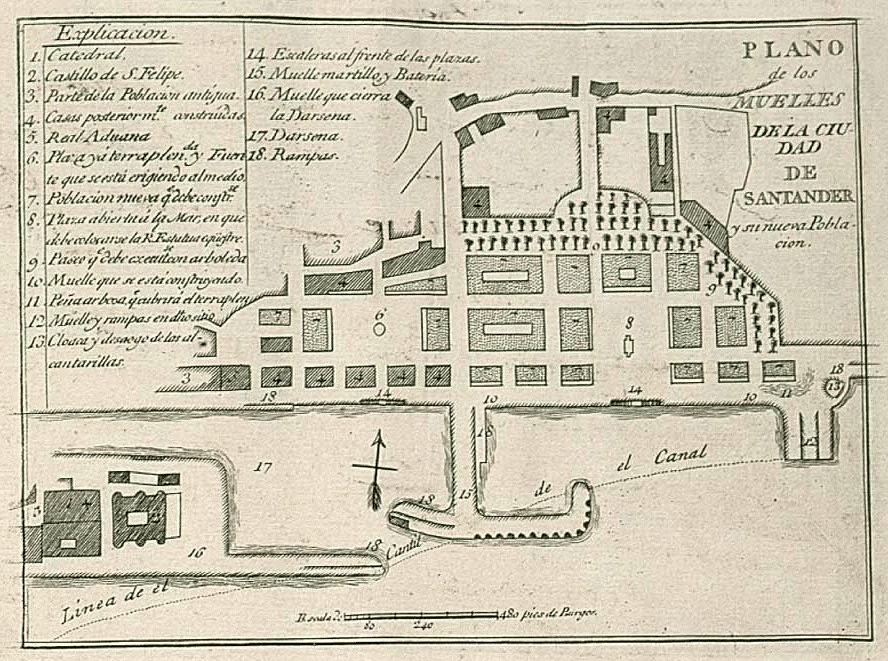 Explicacion.
1. Catedral.
2. Castillo de S. Felipe.
3. Parte de la Poblacion antigua.
4. Casas posterior m.te construidas.
5. Real Aduana
6. Plaza yá terraplen.da y Fuen
te que se está erigiendo al medio.
7. Poblacion nueva q.e debe constr.se
8. Plaza abierta á la Mar, en que
debe colocarse la R. Estatua equestre.
9. Paseo q.e debe con arboleda
10. Muelle que se está construyendo.
11. Peña q. cubrirá el terraplen
12. Muelle y rampas en dho sitio
13. Cloaca y desaogo de las al-
cantarillas.
14. Escaleras al frente de las plazas.
15. Muelle martillo y Bateria.
16. Muelle que cierra
la Darsena.
17. Darsena.
18. Rampas.
PLANO
de los
MUELLES
DE LA CIU-
DAD
DE
SANTANDER
y su nueva Pobla-
cion.
4
4
4
4
3
4
9
9
7
7
7
7
7
7
6
7
7
8
7
7
3
4
4
4
4
4
7
7
7
7
7
7
11
18
13
18
14
10
14
10
12
18
17
15
18
de el Canal
5
1
4
2
16
18
Cantil
Linea de el
Escala de 80 240 480 pies de Burgos.